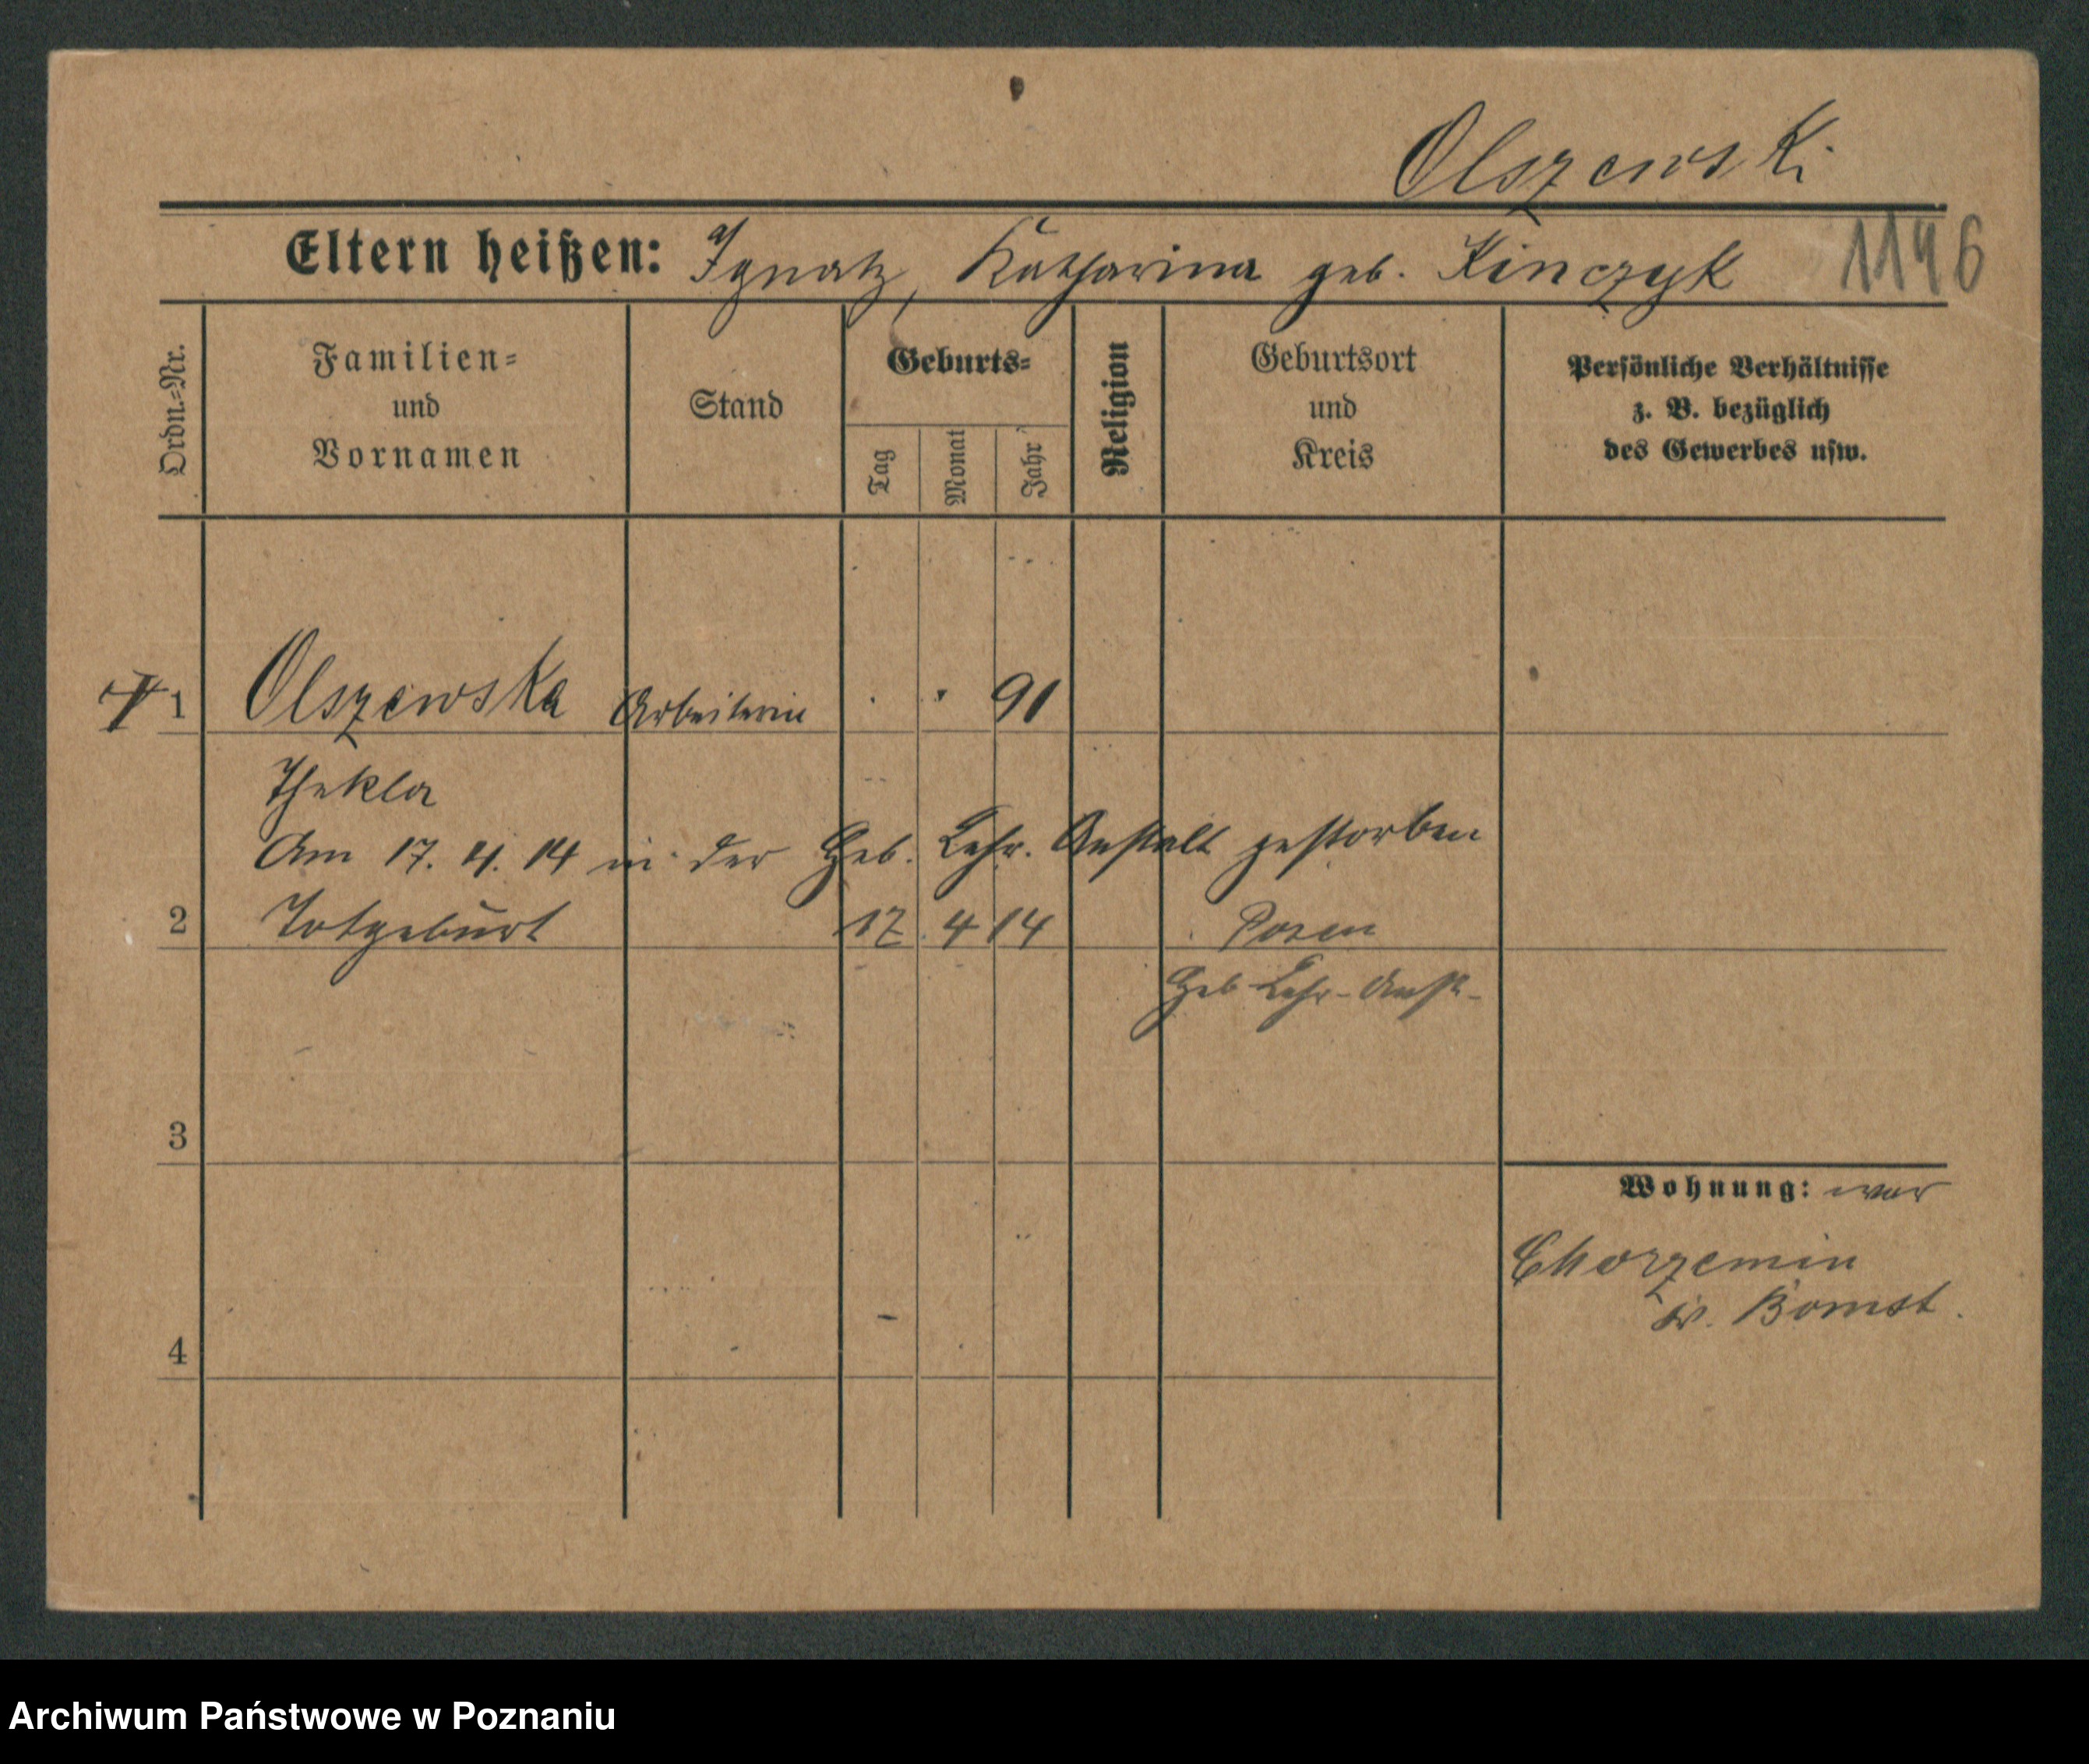 Olszewski
Eltern heißen: Ignatz, Katharina geb. Kinczyk 1146
Ordn.=Nr.
Familien=
und
Vornamen
Stand
Geburts=
Tag
Monat
Jahr
Religion
Geburtsort
und
Kreis
Persönliche Verhältnisse
z. B. bezüglich
des Gewerbes usw.
1 Olszewska Arbeiterin 91
Thekla
Am 17. 4. 14 in der Geb. Lehr. Anstalt gestorben
2 Totgeburt 17 4 14 Posen
Geb Lehr-Anst-
3
Wohnung: war
Chorzemin
Kr. Bomst.
4
Archiwum Państwowe w Poznaniu